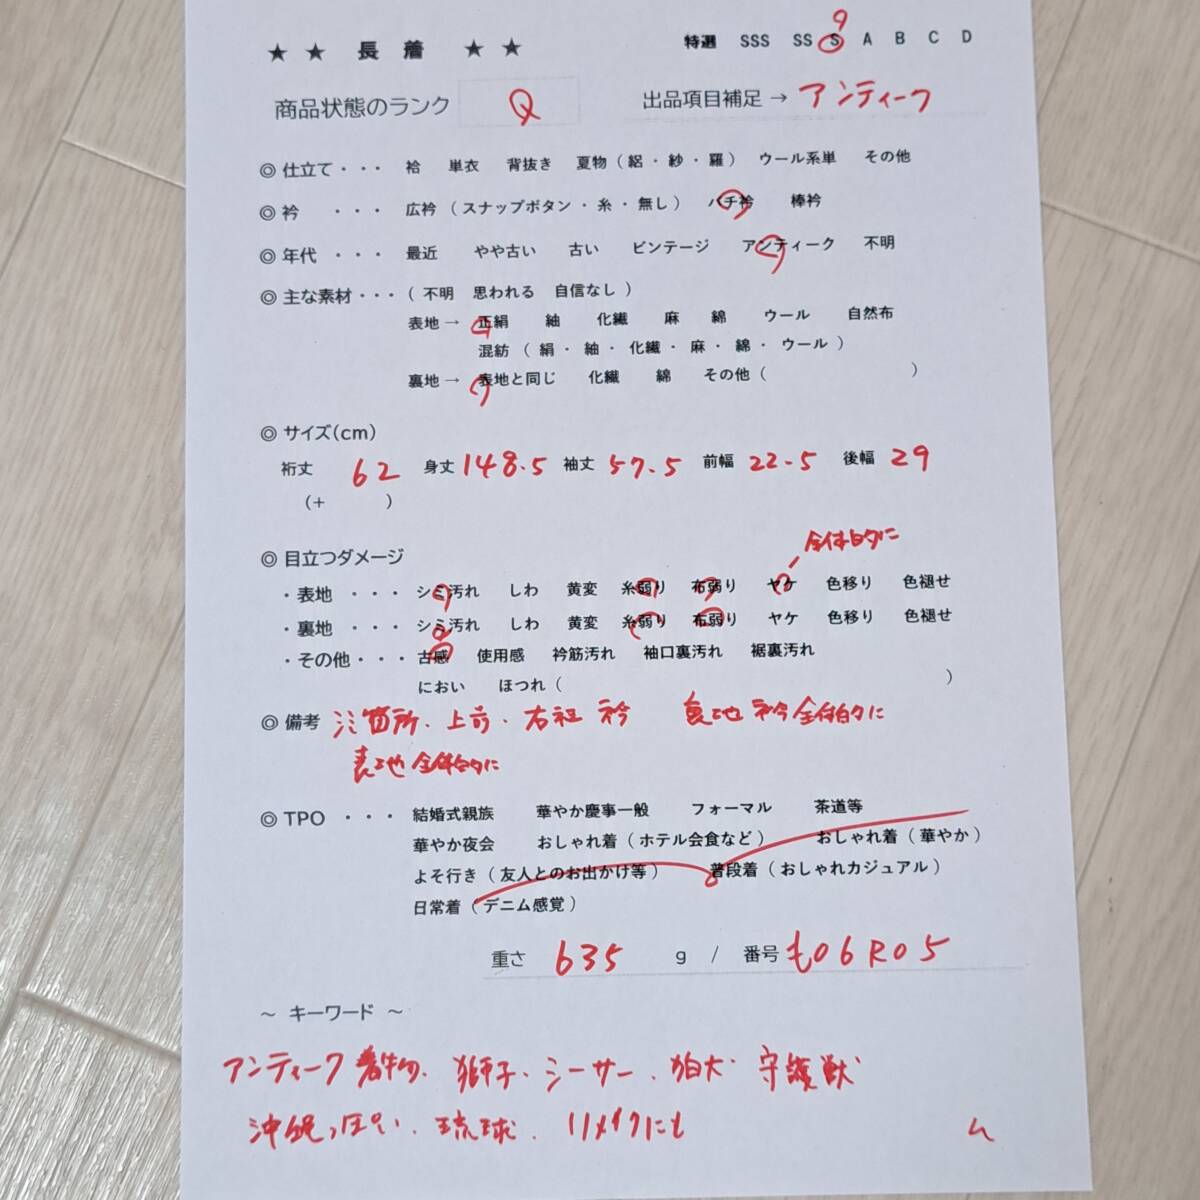 特選 SSS SS S A B C D
★ ★ 長 着 ★ ★
商品状態のランク Q 出品項目補足 → アンティーク
◎ 仕立て・・・ 袷 単衣 背抜き 夏物 ( 絽 ・ 紗 ・ 羅 ) ウール系単 その他
◎ 衿 ・・・ 広衿 ( スナップボタン ・ 糸 ・ 無し ) バチ衿 棒衿
◎ 年代 ・・・ 最近 やや古い 古い ビンテージ アンティーク 不明
◎ 主な素材・・・ ( 不明 思われる 自信なし )
表地 → 正絹 紬 化繊 麻 綿 ウール 自然布
混紡 ( 絹 ・ 紬 ・ 化繊 ・ 麻 ・ 綿 ・ ウール )
裏地 → 表地と同じ 化繊 綿 その他 ( )
◎ サイズ(cm)
裄丈 62 身丈 148.5 袖丈 57.5 前幅 22.5 後幅 29
(+ )
全体的に
◎ 目立つダメージ
・表地 ・・・ シミ汚れ しわ 黄変 糸弱り 布弱り ヤケ 色移り 色褪せ
・裏地 ・・・ シミ汚れ しわ 黄変 糸弱り 布弱り ヤケ 色移り 色褪せ
・その他・・・ 古感 使用感 衿筋汚れ 袖口裏汚れ 裾裏汚れ
におい ほつれ ( )
◎ 備考 シミ箇所、上前、右袖 衿 裏地 衿全体的に
表地 全体的に
◎ TPO ・・・ 結婚式親族 華やか慶事一般 フォーマル 茶道等
華やか夜会 おしゃれ着 ( ホテル会食など ) おしゃれ着 ( 華やか )
よそ行き ( 友人とのお出かけ等 ) 普段着 ( おしゃれカジュアル )
日常着 ( デニム感覚 )
重さ 635 g / 番号 も06R05
～ キーワード ～
アンティーク 着物、獅子、シーサー、狛犬 守護獣
沖縄っぽい、琉球、リメイクにも